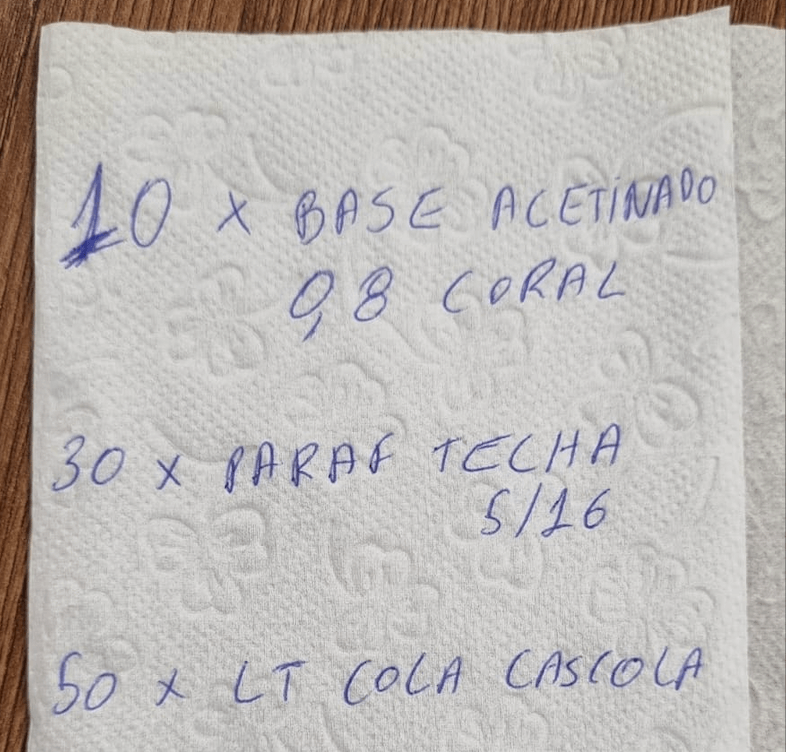 10 x BASE ACETINADO
0,8 CORAL
30 x PARAF TECHA
5/16
50 x LT COLA CASCOLA